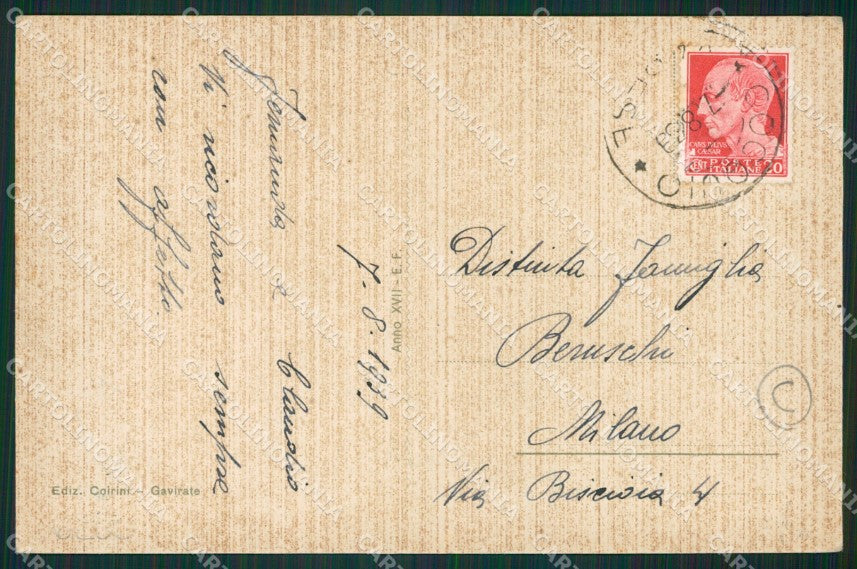 Fernanda e Claudio
Vi ricordano sempre
con affetto
7. 8. 1939
Anno XVII - E. F.
Ediz. Coirini - Gavirate
CAIVS IVLIVS
CAESAR
CENT POSTE 20
ITALIANE
COCQUIO
7.8.39
Distinta Famiglia
Beruschi
Milano
Via Biscioia 4
U
CARTOLINOMANIA